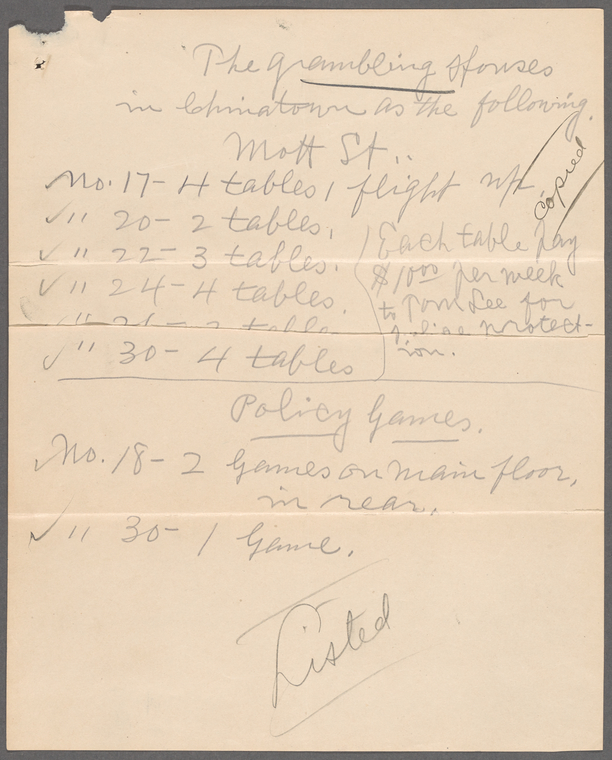 The grambling Houses
in Chinatown as the following.
Mott St..
No. 17 - 4 tables, 1 flight up
✓ " 20 - 2 tables.
✓ " 22 - 3 tables.
✓ " 24 - 4 tables.
✓ " 30 - 4 tables
Each table pay
$10.00 per week
to Tom Lee for
Police protect-
ion.
copied
Policy Games.
✓ No. 18 - 2 Games on main floor,
in rear.
✓ " 30 - 1 Game.
Listed